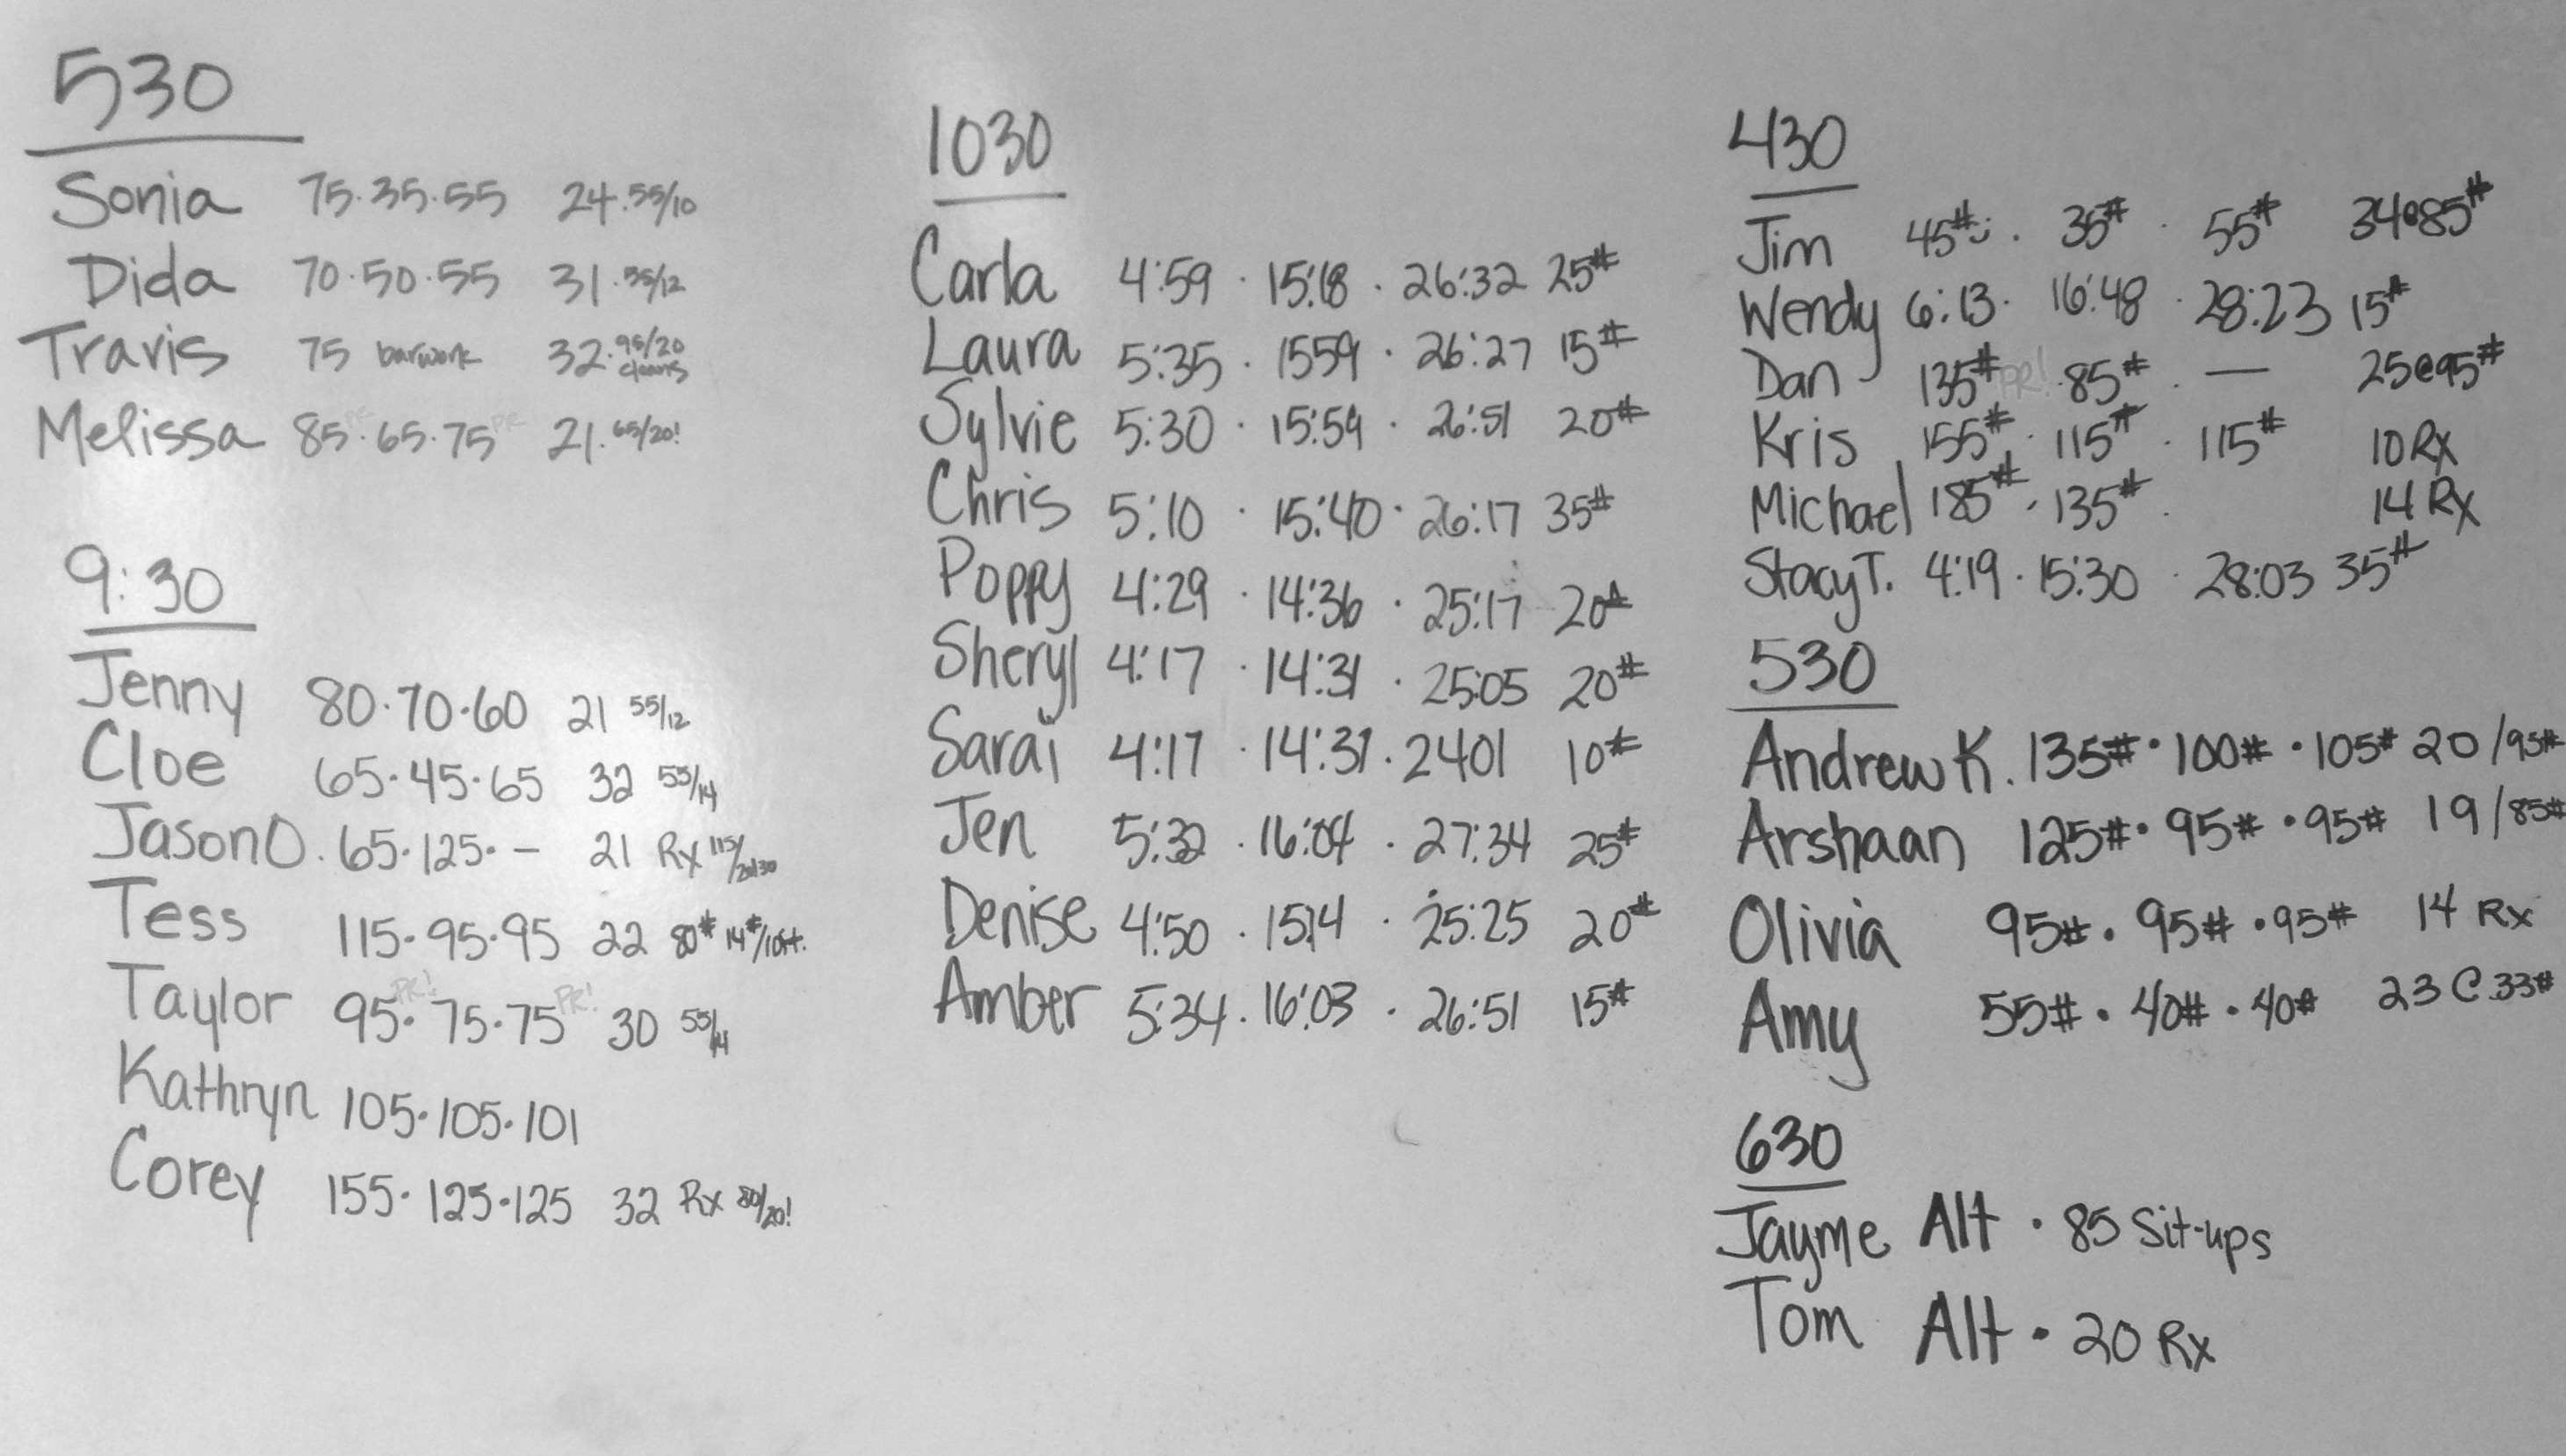 530
Sonia 75·35·55 24·55/10
Dida 70·50·55 31·35/12
Travis 75 barwork 32·95/20 cleans
Melissa 85 PR·65·75 PR 21·65/20!
9:30
Jenny 80·70·60 21 55/12
Cloe 65·45·65 32 55/14
Jason O. 65·125·— 21 Rx 115/20/30
Tess 115·95·95 22 80# 14#/10ft.
Taylor 95·PR! 75·75 PR! 30 55/14
Kathryn 105·105·101
Corey 155·125·125 32 Rx /20!
1030
Carla 4:59 · 15:18 · 26:32 25#
Laura 5:35 · 1559 · 26:27 15#
Sylvie 5:30 · 15:59 · 26:51 20#
Chris 5:10 · 15:40 · 26:17 35#
Poppy 4:29 · 14:36 · 25:17 20#
Sheryl 4:17 · 14:31 · 25:05 20#
Sarai 4:17 · 14:31 · 2401 10#
Jen 5:32 · 16:04 · 27:34 25#
Denise 4:50 · 15:14 · 25:25 20#
Amber 5:34 · 16:03 · 26:51 15#
430
Jim 45# · 35# · 55# 34@85#
Wendy 6:13 · 16:48 · 28:23 15#
Dan 135# PR! · 85# · — 25@95#
Kris 155# · 115# · 115# 10 Rx
Michael 185# · 135# · 14 Rx
Stacy T. 4:19 · 15:30 · 28:03 35#
530
Andrew K. 135# · 100# · 105# 20/95#
Arshaan 125# · 95# · 95# 19/85#
Olivia 95# · 95# · 95# 14 Rx
Amy 55# · 40# · 40# 23 @ 33#
630
Jayme Alt · 85 Sit-ups
Tom Alt · 20 Rx